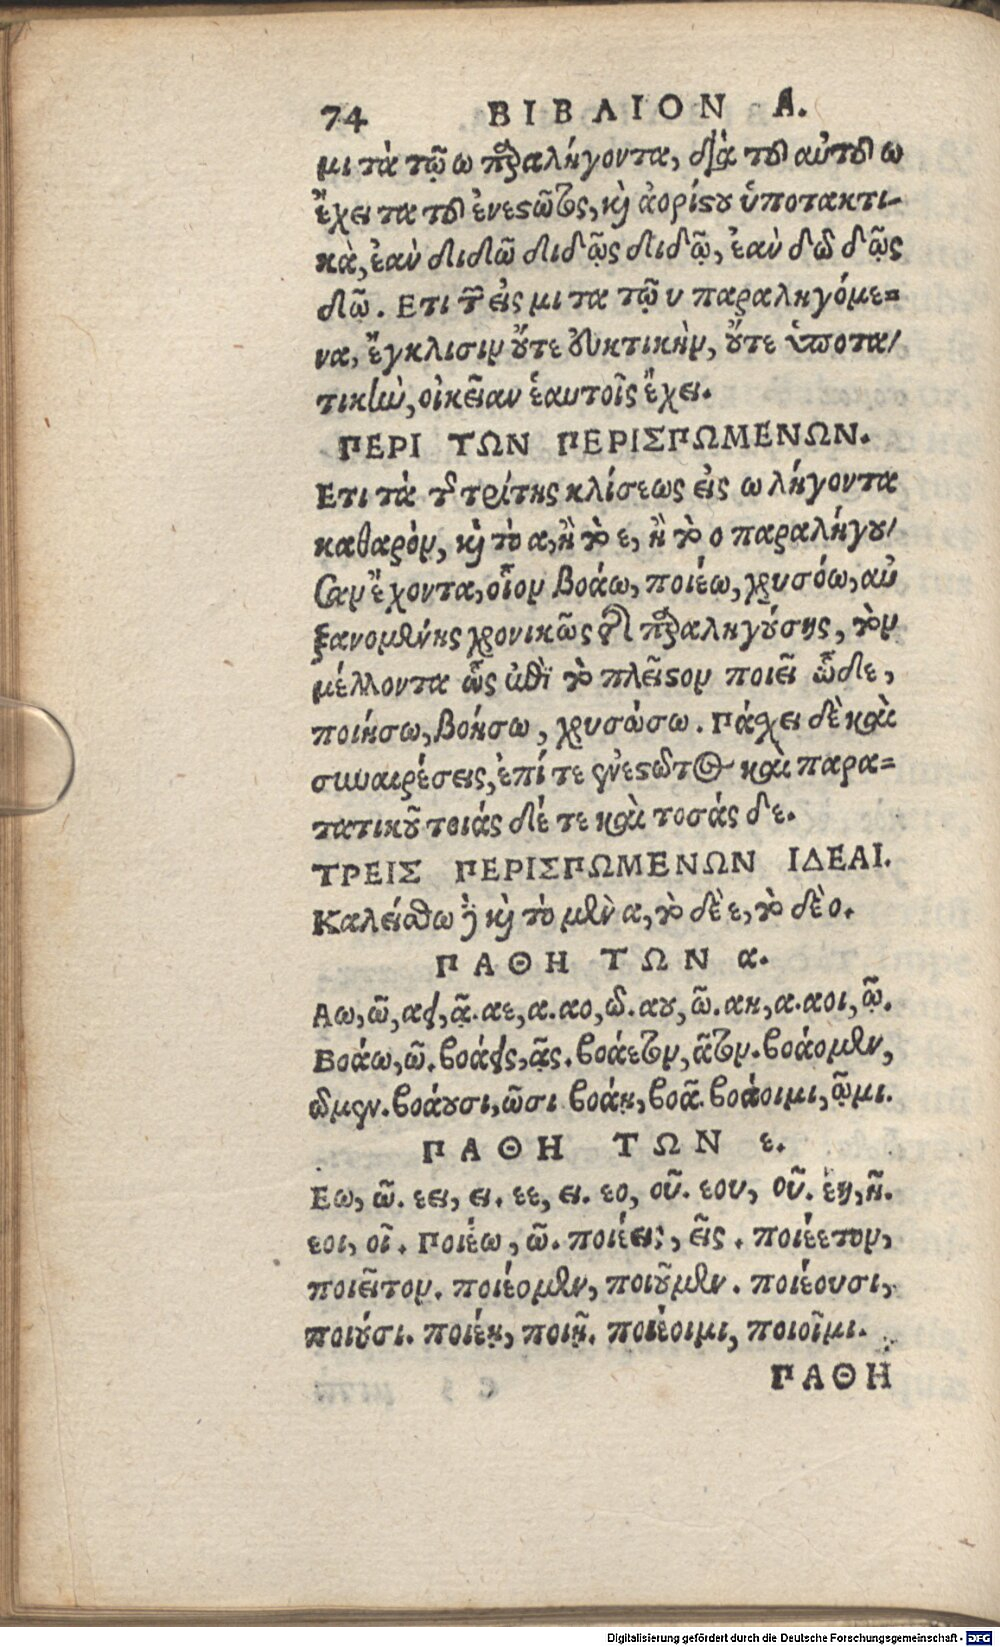 74 ΒΙΒΛΙΟΝ Α.
μι τὰ τῷ ω παραλήγοντα, διὰ τοῦ αὐτοῦ ω
ἔχει τα τοῦ ἐνεστῶτος, καὶ ἀορίστου ὑποτακτι-
κὰ, ἐὰν διδῶ διδῷς διδῷ, ἐὰν δῶ δῷς
δῷ. Ετι τῶν εἰς μι τα τῷ υ παραληγόμε=
να, ἔγκλισιν οὔτε εὐκτικὴν, οὔτε ὑποτα/
τικὴν, οἰκεῖαν ἑαυτοῖς ἔχει.
ΠΕΡΙ ΤΩΝ ΠΕΡΙΣΠΩΜΕΝΩΝ.
Ετι τὰ τῆς τρίτης κλίσεως εἰς ω λήγοντα
καθαρὸν, καὶ τὸ α, ἢ τὸ ε, ἢ τὸ ο παραλήγου/
σαν ἔχοντα, οἷον βοάω, ποιέω, χρυσόω, αὐ
ξανομένης χρονικῶς τῆς παραληγούσης, τὸν
μέλλοντα ὡς ἐπὶ τὸ πλεῖστον ποιεῖ ὧδε,
ποιήσω, βοήσω, χρυσώσω. Πάσχει δὲ καὶ
συναιρέσεις, ἐπί τε ἐνεστῶτος καὶ παρα=
τατικοῦ τοιάς δέ τε καὶ τοσάς δε.
ΤΡΕΙΣ ΠΕΡΙΣΠΩΜΕΝΩΝ ΙΔΕΑΙ.
Καλείσθω ἡ καὶ τὸ μὲν α, τὸ δὲ ε, τὸ δὲ ο.
ΠΑΘΗ ΤΩΝ α.
Αω, ῶ, αει, ᾷ. αε, α. αο, ω. αου, ῶ. αη, α. αοι, ῷ.
Βοάω, ῶ. βοάεις, ᾷς. βοάετον, ᾶτον. βοάομεν,
ωμεν. βοάουσι, ῶσι βοάῃ, βοᾶ. βοάοιμι, ῷμι.
ΠΑΘΗ ΤΩΝ ε.
Εω, ῶ. εει, ει. εε, ει. εο, οῦ. εου, οῦ. έῃ, ῆ.
εοι, οῖ. Ποιέω, ῶ. ποιέεις, εῖς. ποιέετον,
ποιεῖτον. ποιέομεν, ποιοῦμεν. ποιέουσι,
ποιούσι. ποιέῃ, ποιῇ. ποιέοιμι, ποιοῖμι.
ΠΑΘΗ
Digitalisierung gefördert durch die Deutsche Forschungsgemeinschaft - DFG